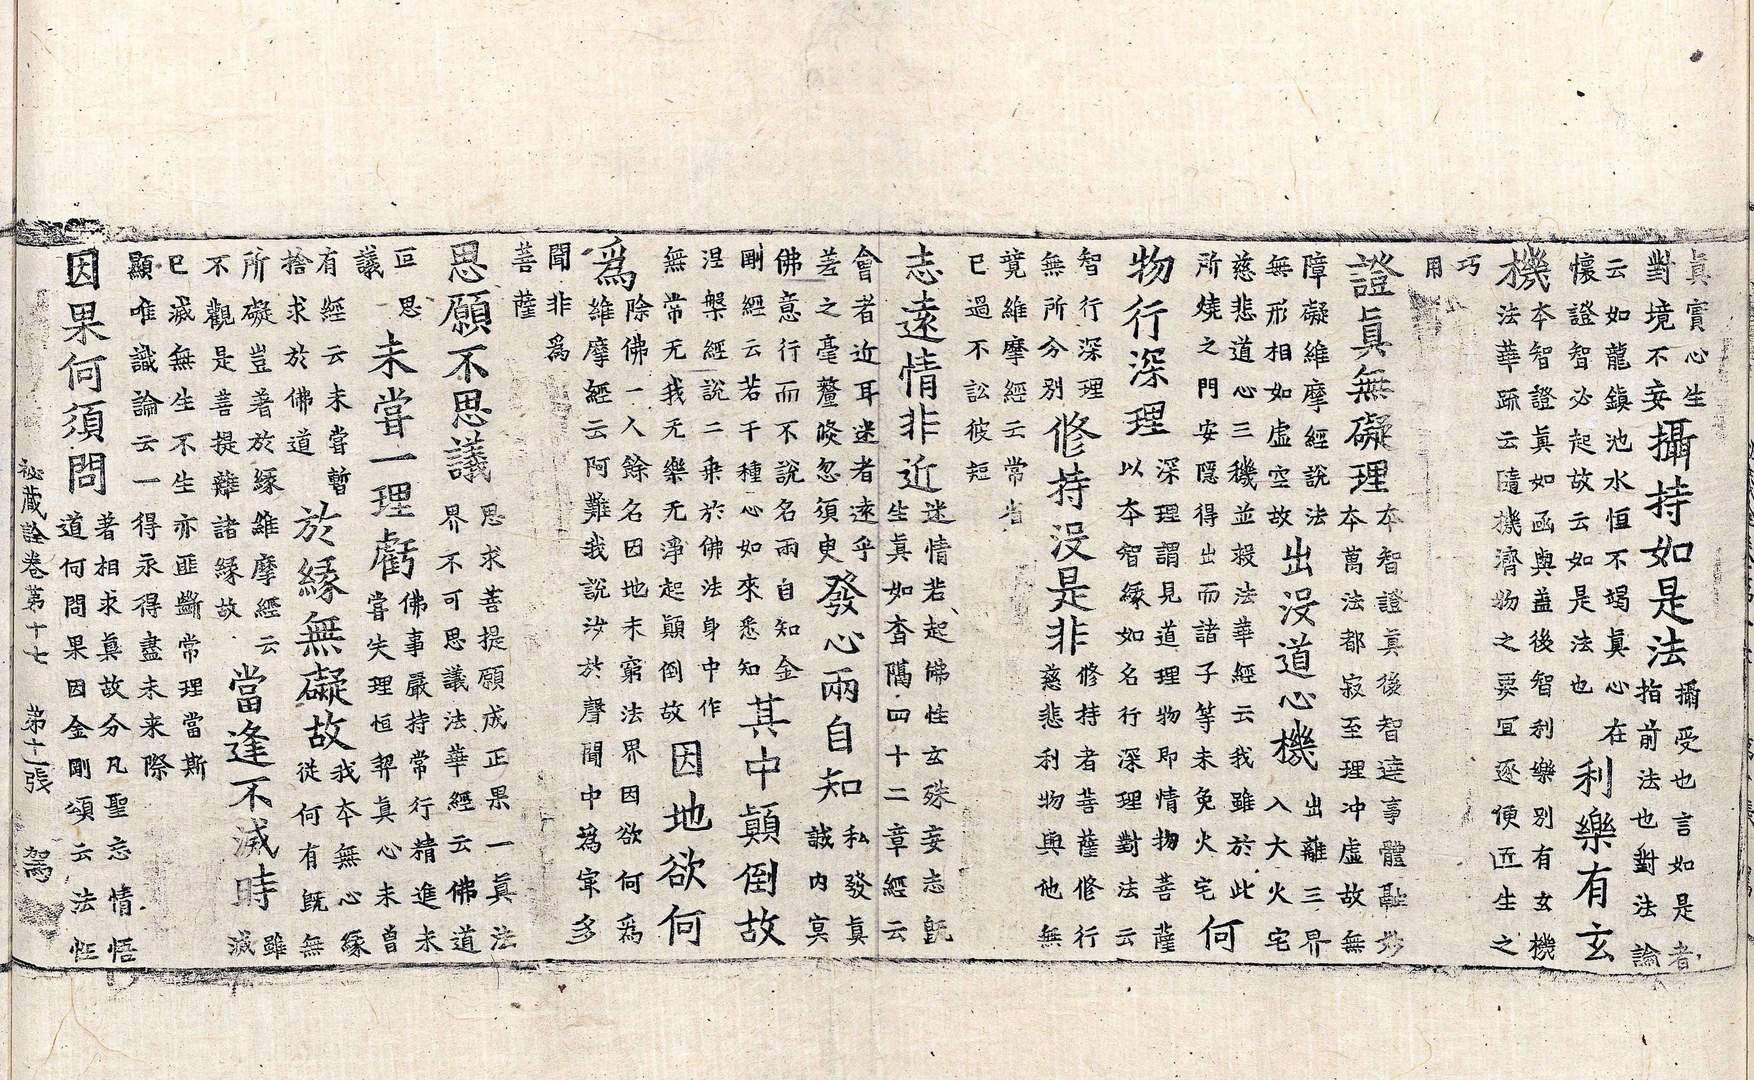 眞實心生
對境不妄
攝持如是法
攝受也言如是者
指前法也對法論
云如龍鎮池水恒不竭眞心在
懷證智必起故云如是法也
利樂有玄
機
本智證眞如函與盖後智利樂別有玄機
法華䟽云隨機濟物之要冝逐便匠生之
巧
用
證眞無礙理
本智證眞後智達事體融妙
本萬法都寂至理冲虛故無
障礙維摩經說法
無形相如虛空故
出沒道心機
出離三界
入大火宅
慈悲道心三機並授法華經云我雖於此
所燒之門安隱得出而諸子等未免火宅
何
物行深理
深理謂見道理物即情物菩薩
以本智緣如名行深理對法云
智行深理
無所分別
修持沒是非
修持者菩薩修行
慈悲利物與他無
竟維摩經云常省
已過不訟彼短
志遠情非近
迷情若起佛性玄殊妄志旣
生眞如杳隔四十二章經云
會者近耳迷者遠乎
差之毫釐倐忽須臾
發心兩自知
私發眞
誠内冥
佛意行而不說名兩自知金
剛經云若干種心如來悉知
其中顚倒故
涅槃經說二乗於佛法身中作
無常无我无樂无淨起顚倒故
因地欲何
爲
除佛一人餘名因地未窮法界因欲何爲
維摩經云阿難我說汝於聲聞中爲㝡多
聞非爲
菩薩
思願不思議
思求菩提願成正果一眞法
界不可思議法華經云佛道
叵思
議
未甞一理虧
佛事嚴持常行精進未
甞失理恒契眞心未曾
有經云未甞暫
捨求於佛道
於緣無礙故
我本無心緣
從何有旣無
所礙豈著於緣維摩經云
不觀是菩提離諸緣故
當逢不滅時
雖
滅
已滅無生不生亦匪斷常理當斯
顯唯識論云一得永得盡未来際
因果何須問
著相求眞故分凡聖忘情悟
道何問果因金剛頌云法性
祕藏詮卷苐十七 苐十二張 駕